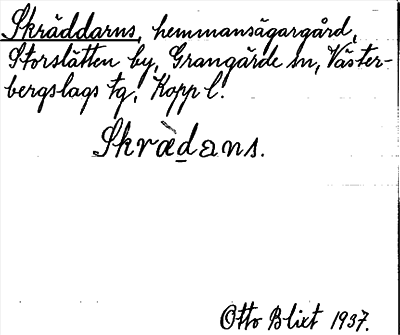 Skräddarns, hemmansägargård,
Storslätten by, Grangärde sn, Väster-
bergslags tg, Kopp l.
Skrädans.
Otto Blixt 1937.